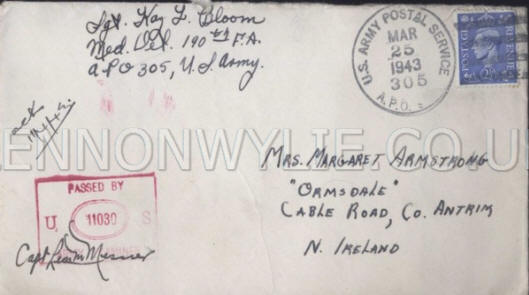 Sgt. Kay L. Bloom
Med. Det. 190th F.A.
A.P.O 305, U.S. Army.
U.S. ARMY POSTAL SERVICE
MAR
25
1943
305
A.P.O.
POSTAGE REVENUE
MRS. MARGARET ARMSTRONG
"ORMSDALE"
CABLE ROAD, CO. ANTRIM
N. IRELAND
PASSED BY
U 11030 S
Capt
LENNONWYLIE.CO.U